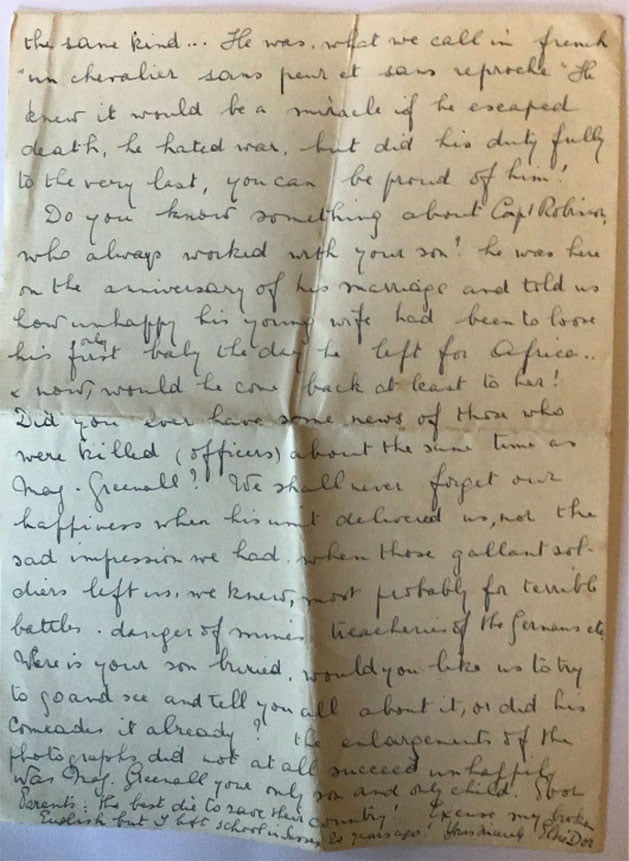 the same kind... He was, what we call in french
"un chevalier sans peur et sans reproche" He
knew it would be a miracle if he escaped
death, he hated war, but did his duty fully
to the very last, you can be proud of him!
Do you know something about Capt Robinson,
who always worked with your son? he was here
on the anniversary of his marriage and told us
how unhappy his young wife had been to loose
his only first baby the day he left for Africa..
& now, would he come back at least to her!
Did you ever have some news of those who
were killed (officers) about the same time as
Maj. Greenall? We shall never forget our
happiness when his unit delivered us, nor the
sad impression we had, when those gallant sol-
diers left us, we knew, most probably for terrible
battles. danger of mines treacheries of the Germans etc
Were is your son buried, would you like us to try
to go and see and tell you all about it, or did his
comrades it already? the enlargements of the
photographs did not at all succeed unhappily
Was Maj. Greenall your only son and only child. Poor
Parents: the best die to save their country! Excuse my broken
English but I left school in Sussex 20 years ago! Yours sincerely